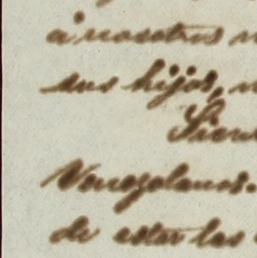 á nosotros
sus hijos,
Venezolanos.
de estar las